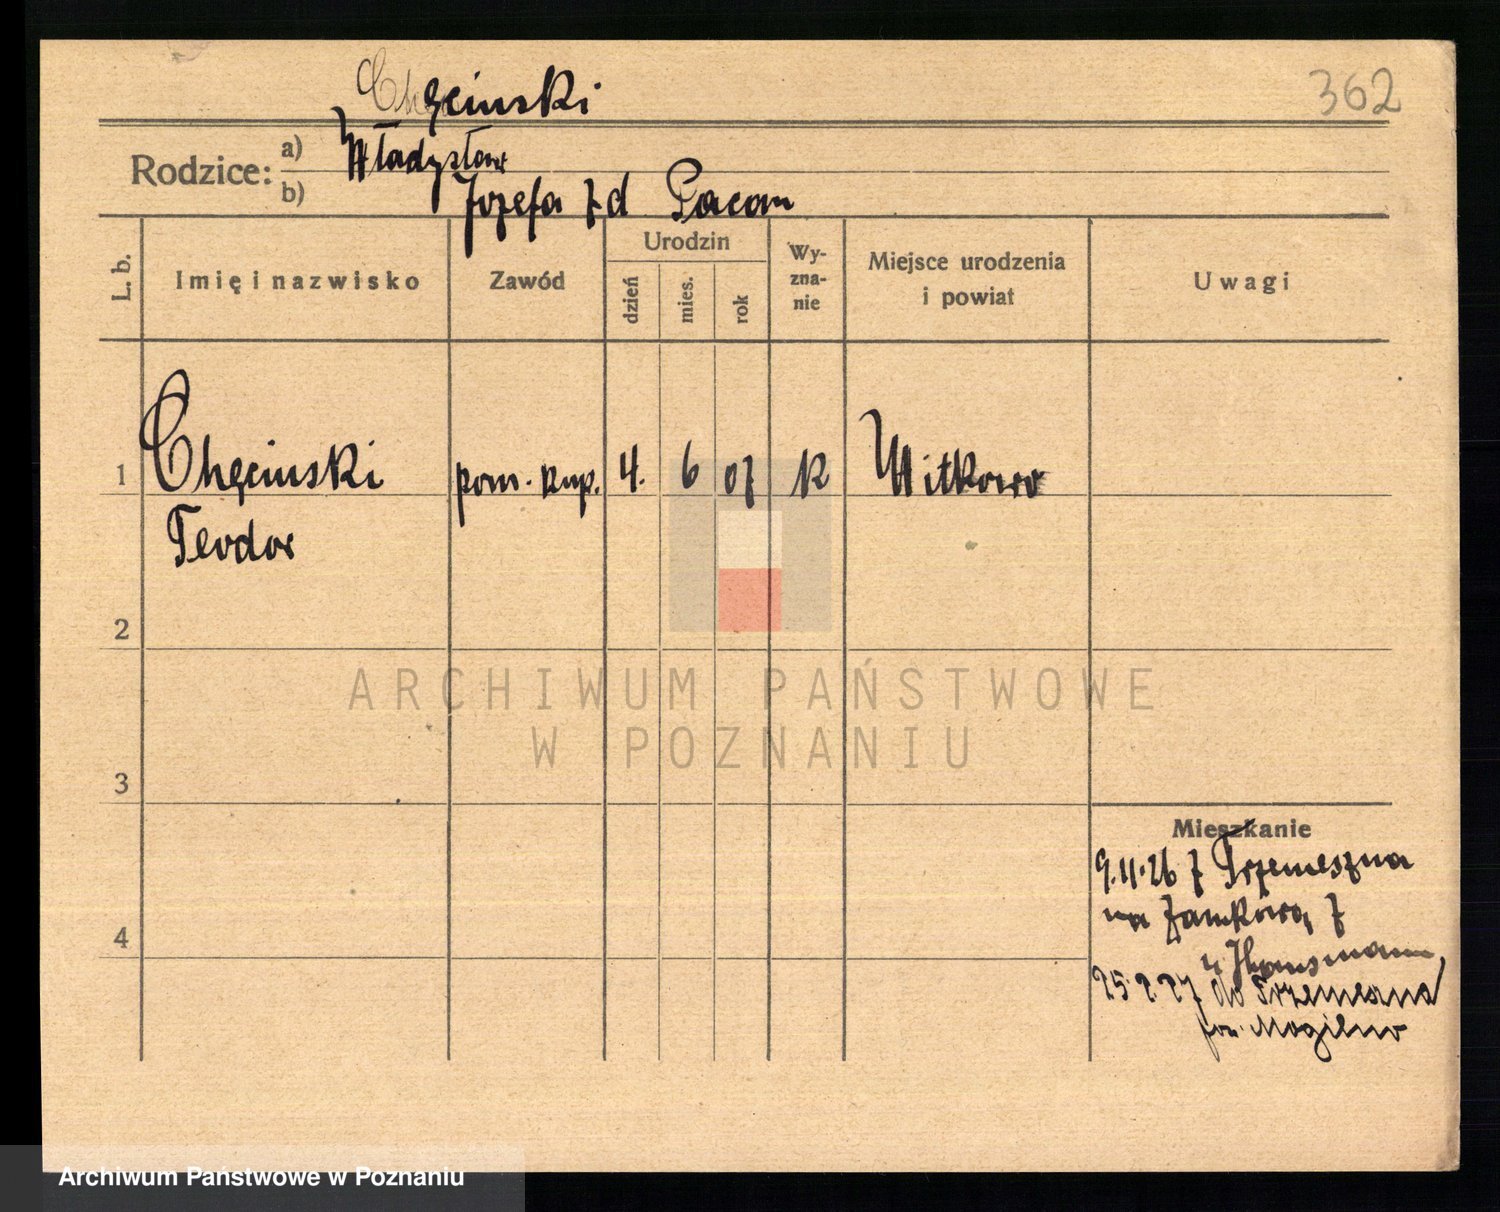 Chęcinski
362
Rodzice: a) Władysław
b) Józefa z d Pacan
L. b.
Imię i nazwisko
Zawód
Urodzin
dzień
mies.
rok
Wy-
zna-
nie
Miejsce urodzenia
i powiat
Uwagi
1 Chęcinski pom. kup. 4. 6 07 k Witkowo
Teodor
2
ARCHIWUM PAŃSTWOWE
W POZNANIU
3
Mieszkanie
9.11.26 z Trzemeszna
na Zamkową 7
4
u
25.2.27 do Trzemeszna
pow. Mogilno
Archiwum Państwowe w Poznaniu